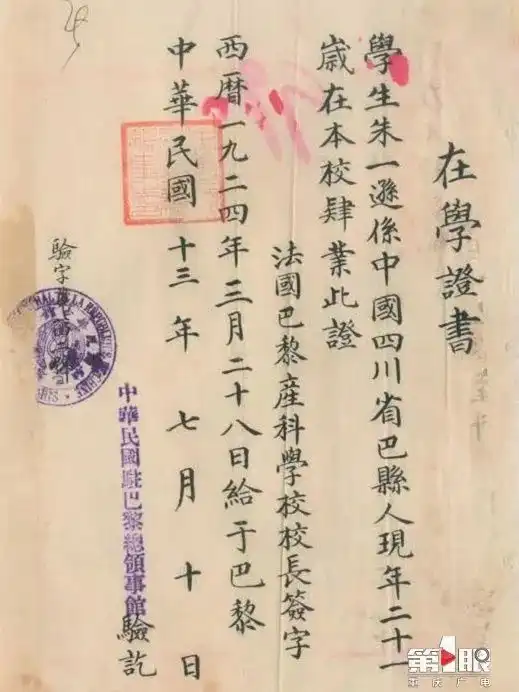 在學證書
學生朱一遜係中國四川省巴縣人現年二十一
歲在本校肄業此證
法國巴黎產科學校校長簽字
西曆一九二四年三月二十八日給于巴黎
中華民國十三年七月十日
中華民國駐巴黎總領事館驗訖
驗字
第1眼
重庆广电